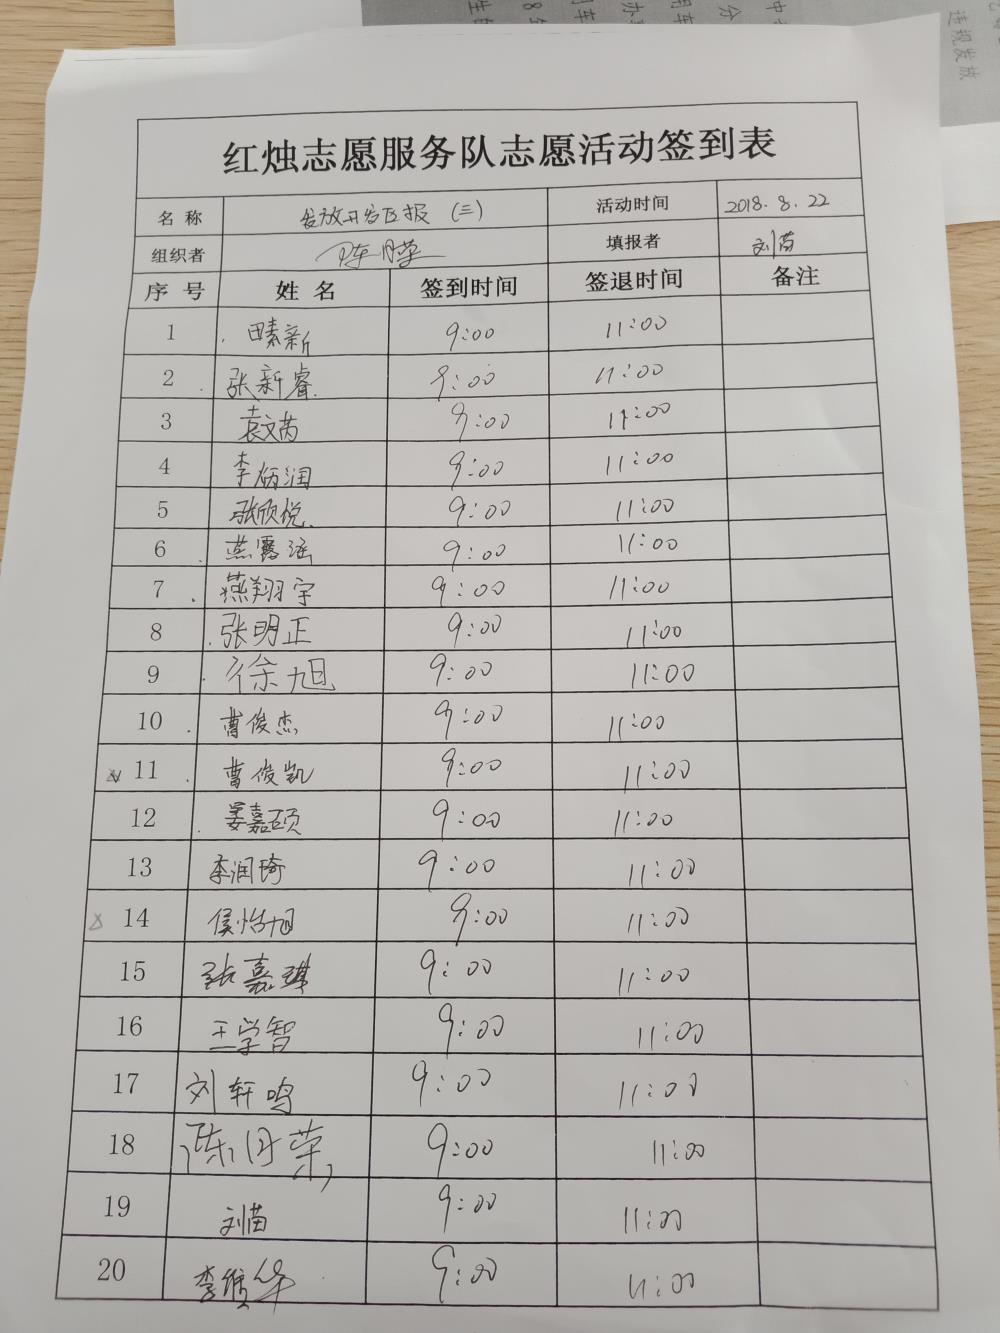 违规发放
红烛志愿服务队志愿活动签到表
名 称 发放开发区报 (三) 活动时间 2018.8.22
组织者 陈月荣 填报者 刘苗
序 号 姓 名 签到时间 签退时间 备注
1 新 9:00 11:00
2 张新睿 9:00 11:00
3 袁文芮 9:00 11:00
4 李炳润 9:00 11:00
5 张欣悦 9:00 11:00
6 燕露瑶 9:00 11:00
7 燕翔宇 9:00 11:00
8 张明正 9:00 11:00
9 徐旭 9:00 11:00
10 曹俊杰 9:00 11:00
11 曹俊凯 9:00 11:00
12 姜嘉硕 9:00 11:00
13 李润琦 9:00 11:00
14 侯怡旭 9:00 11:00
15 张嘉琪 9:00 11:00
16 王学智 9:00 11:00
17 刘轩鸣 9:00 11:00
18 陈月荣 9:00 11:00
19 刘苗 9:00 11:00
20 李 华 9:00 11:00